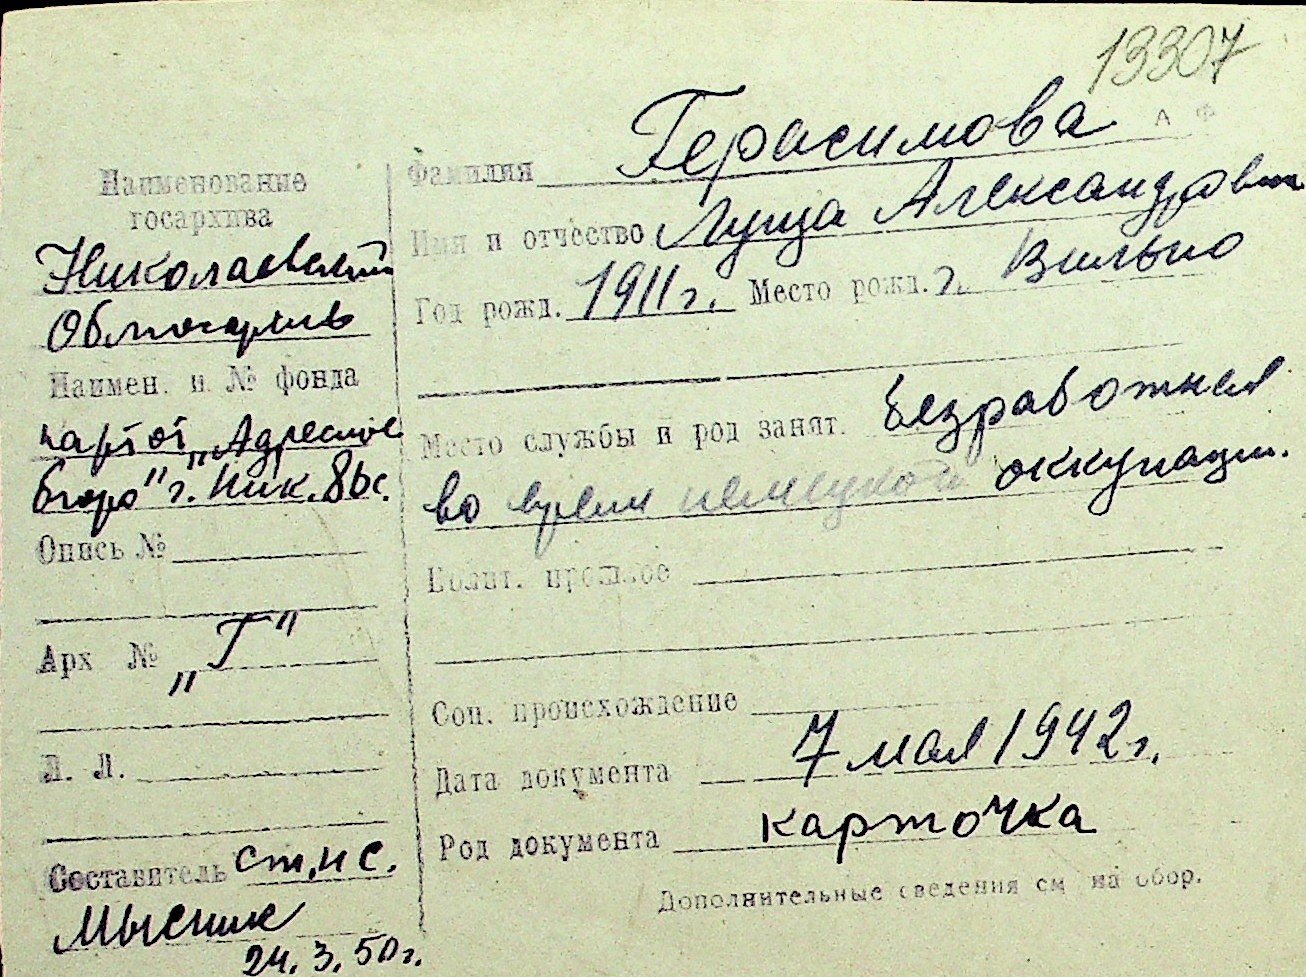 13307
А Ф
Наименование
госархива
Николаевский
Облгосархив
Наимен. и № фонда
картот. „Адресное
бюро" г. Ник.
Опись №
Арх №
„Г"
Л. Л.
Составитель ст. н с.
Мысник
24. 3. 50 г.
Фамилия Герасимова
Имя и отчество Луиза Александровна
Год рожд. 1911 г. Место рожд. г. Вильно
Место службы и род занят. безработная
во время немецкой оккупации.
Полит. прошлое
Соц. происхождение
Дата документа 7 мая 1942 г.
Род документа карточка
Дополнительные сведения см на обор.